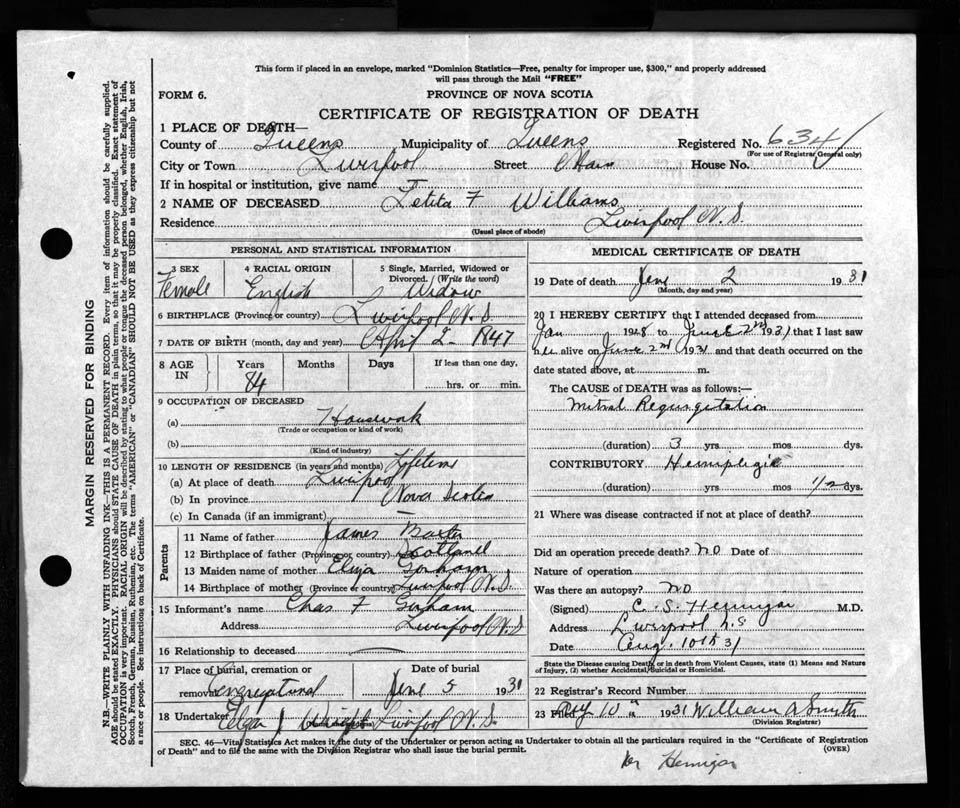 This form if placed in an envelope, marked "Dominion Statistics—Free, penalty for improper use, $300," and properly addressed
will pass through the Mail "FREE"
FORM 6.
PROVINCE OF NOVA SCOTIA
CERTIFICATE OF REGISTRATION OF DEATH
1 PLACE OF DEATH—
County of Queens Municipality of Queens Registered No. 634
(For use of Registrar General only)
City or Town Liverpool Street Main House No.
If in hospital or institution, give name
2 NAME OF DECEASED Letita F Williams
Residence Liverpool N.S.
(Usual place of abode)
PERSONAL AND STATISTICAL INFORMATION
3 SEX 4 RACIAL ORIGIN 5 Single, Married, Widowed or
Divorced. (Write the word)
Female English Widow
6 BIRTHPLACE (Province or country) Liverpool N.S.
7 DATE OF BIRTH (month, day and year) April 2 - 1847
8 AGE IN Years Months Days If less than one day,
84 hrs. or min.
9 OCCUPATION OF DECEASED
(a) Housework
(Trade or occupation or kind of work)
(b)
(Kind of industry)
10 LENGTH OF RESIDENCE (in years and months) Lifetime
(a) At place of death Liverpool
(b) In province Nova Scotia
(c) In Canada (if an immigrant) —
Parents
11 Name of father James Baxter
12 Birthplace of father (Province or country) Scotland
13 Maiden name of mother Eliza Gorham
14 Birthplace of mother (Province or country) Liverpool N.S.
15 Informant's name Chas F Gorham
Address Liverpool N.S
16 Relationship to deceased
17 Place of burial, cremation or Date of burial
removal Congregational June 5 1931
18 Undertaker Liverpool N.S.
MEDICAL CERTIFICATE OF DEATH
19 Date of death June 2 1931
(Month, day and year)
20 I HEREBY CERTIFY that I attended deceased from
Jan 1928 to June 2nd 1931 that I last saw
her alive on June 2nd 1931 and that death occurred on the
date stated above, at m.
The CAUSE OF DEATH was as follows:—
Mitral Regurgitation
(duration) 3 yrs mos dys.
CONTRIBUTORY Hemiplegia
(duration) yrs mos 1/2 dys.
21 Where was disease contracted if not at place of death?
Did an operation precede death? NO Date of
Nature of operation
Was there an autopsy? NO
(Signed) C. S. Hennigar M.D.
Address Liverpool N.S
Date Aug. 10th 31
State the Disease causing Death, or in death from Violent Causes, state (1) Means and Nature
of Injury, (2) whether Accidental, Suicidal or Homicidal.
22 Registrar's Record Number
23 Filed 10th 1931 William A Smith
(Division Registrar)
SEC. 46—Vital Statistics Act makes it the duty of the Undertaker or person acting as Undertaker to obtain all the particulars required in the "Certificate of Registration
of Death" and to file the same with the Division Registrar who shall issue the burial permit.
(OVER)
Dr Hennigar
MARGIN RESERVED FOR BINDING
N.B.—WRITE PLAINLY WITH UNFADING INK—THIS IS A PERMANENT RECORD. Every item of information should be carefully supplied.
AGE should be stated EXACTLY. PHYSICIANS should STATE CAUSE OF DEATH in plain terms, so that it may be properly classified. Exact statement of
OCCUPATION is very important. RACIAL ORIGIN will be described by stating to what people or tongue the deceased person belonged, whether English, Irish,
Scotch, French, German, Russian, Ruthenian, etc. The terms "AMERICAN" or "CANADIAN" SHOULD NOT BE USED as they express citizenship but not
a race or people. See instructions on back of Certificate.